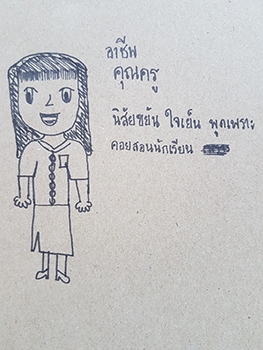 อาชีพ
คุณครู
นิสัยขยัน ใจเย็น พูดเพราะ
คอยสอนนักเรียน